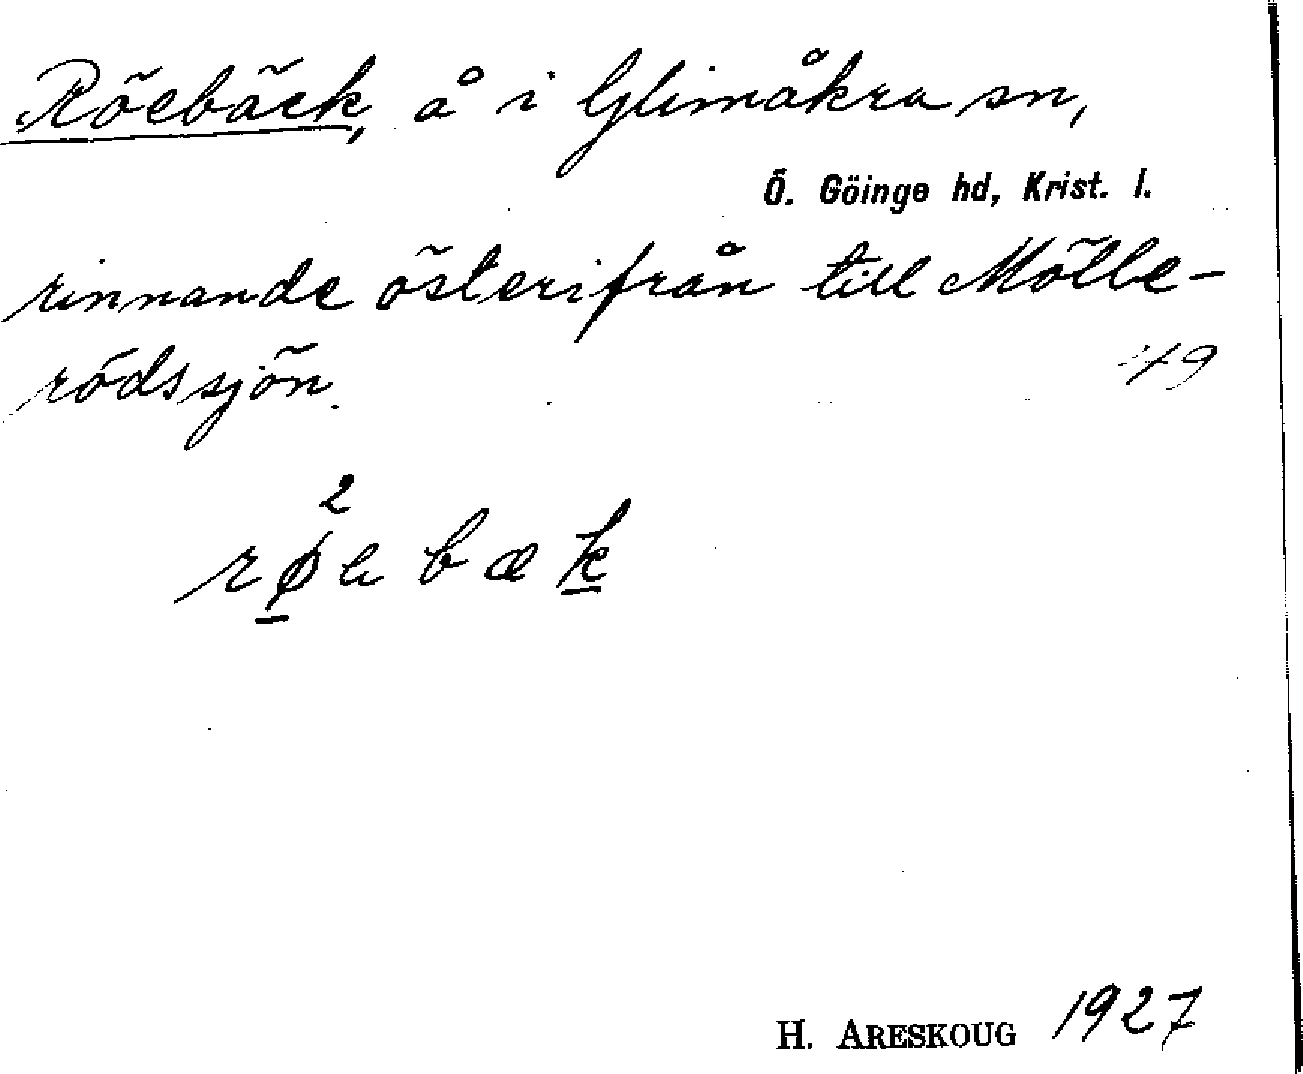 Röebäck, å i Glimåkra sn,
Ö. Göinge hd, Krist. l.
rinnande österifrån till Mölle-
rödssjön.
49
2
røe bæk
H. ARESKOUG 1927